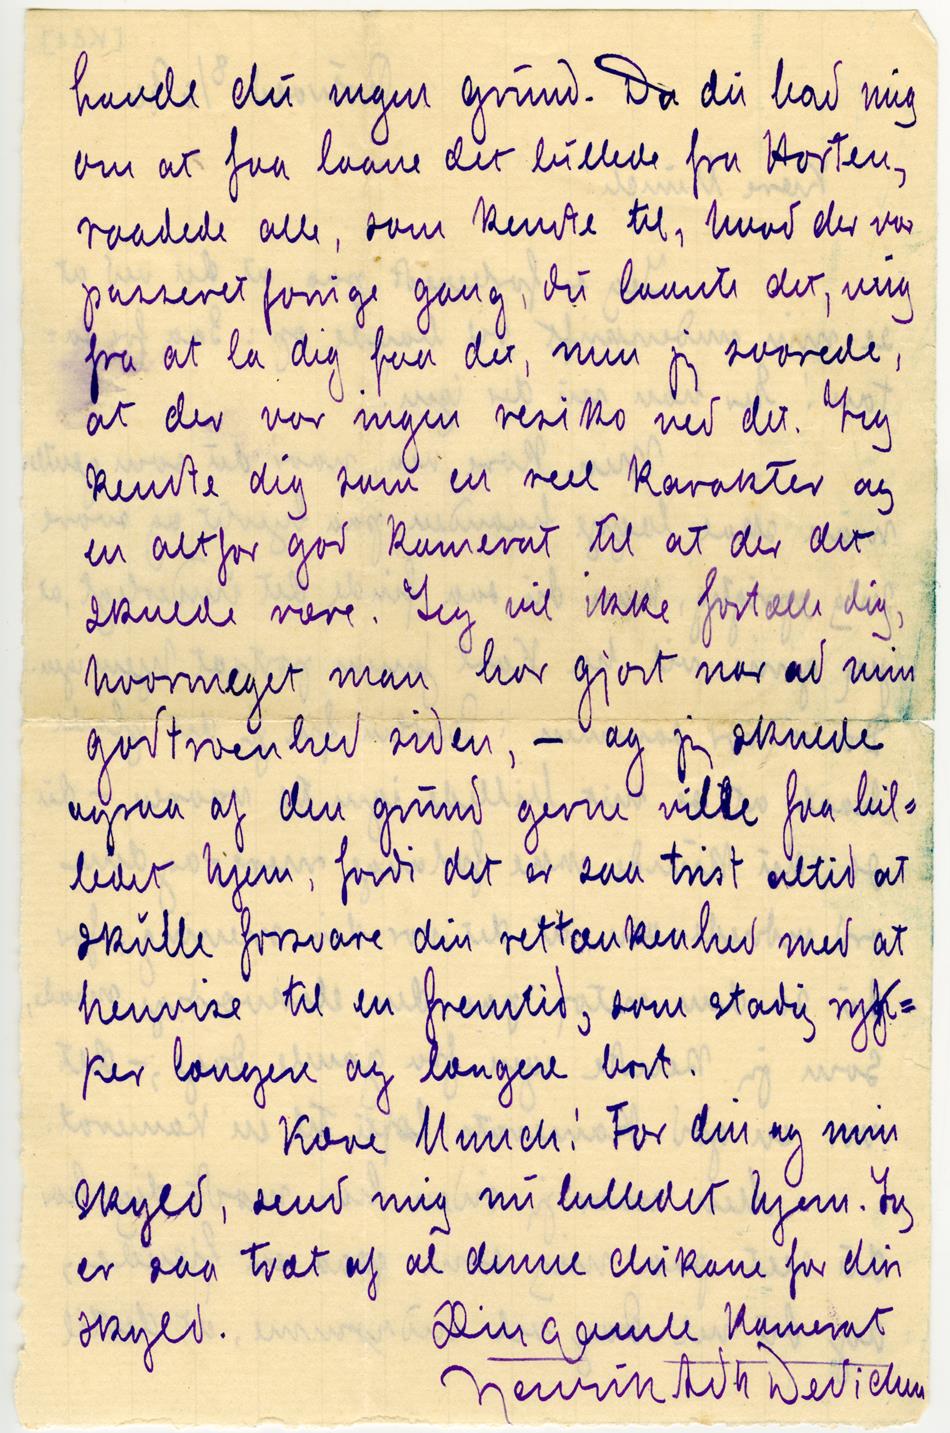 havde du ingen grund. Da du bad mig
om at faa laane det billede fra Horten,
raadede alle, som kendte til, hvad der var
passeret forrige gang, du laante det, mig
fra at la dig faa det, men jeg svarede,
at der var ingen resiko ved det. Jeg
kendte dig som en reel karakter og
en altfor god kamerat til at der det
skulde være. Jeg vil ikke fortælle dig,
hvormeget man har gjort nar ad min
godtroenhed siden, — og jeg skulde
ogsaa af den grund gerne ville faa bil=
ledet hjem, fordi det er saa trist altid at
skulle forsvare din rettænkenhed med at
henvise til en fremtid, som stadig ryk=
ker længere og længere bort.
Kære Munch! For din og min
skyld, send mig nu billedet hjem. Jeg
er saa træt af al denne chikane for din
skyld. Din gamle Kamerat
Henrik Adth Dedichen